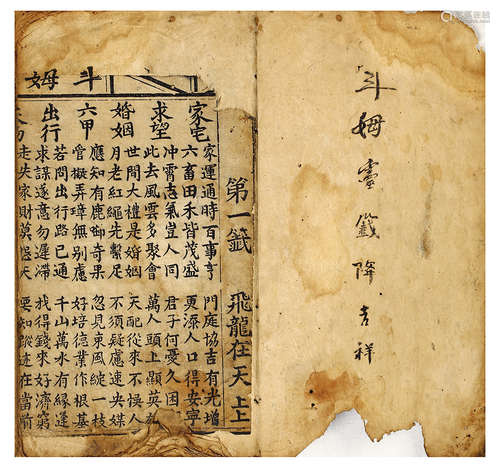 斗姆靈籤降吉祥
斗姆
第一籤 飛龍在天 上上
家宅 家運通時百事亨 門庭協吉有光增
六畜田禾皆茂盛 更添人口得安寧
求望 冲霄志氣豈人同 君子何憂久困
此去風雲多聚會 萬人頭上顯英
婚姻 世間大禮是婚姻 天配從來不悞人
月老紅繩先繫足 不須疑慮速央媒
六甲 應知有鹿御奇果 忽見東風綻一枝
管擬弄璋無別應 好培德業作根基
出行 若問出行路已通 千山萬水有緣逢
求謀遂意勿遲滯 找得錢來好濟窮
走失家財莫怨天 要知蹤跡在當前